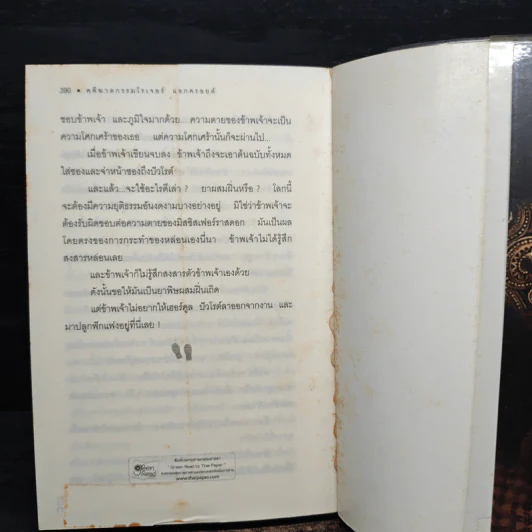 390 • คดีฆาตกรรมโรเจอร์ แอกครอยด์
ชอบข้าพเจ้า และภูมิใจมากด้วย... ความตายของข้าพเจ้าจะเป็น
ความโศกเศร้าของเธอ แต่ความโศกเศร้านั้นก็จะผ่านไป...
เมื่อข้าพเจ้าเขียนจบลง ข้าพเจ้าถึงจะเอาต้นฉบับทั้งหมด
ใส่ซองและจ่าหน้าซองถึงปัวโรต์
และแล้ว...จะใช้อะไรดีเล่า ? ยาผสมฝิ่นหรือ ? โลกนี้
จะต้องมีความยุติธรรมอันงดงามบางอย่างอยู่ มิใช่ว่าข้าพเจ้าจะ
ต้องรับผิดชอบต่อความตายของมิสซิสเฟอร์ราสดอก มันเป็นผล
โดยตรงของการกระทำของหล่อนเองนี่นา ข้าพเจ้าไม่ได้รู้สึก
สงสารหล่อนเลย
และข้าพเจ้าก็ไม่รู้สึกสงสารตัวข้าพเจ้าเองด้วย
ดังนั้นขอให้มันเป็นยาพิษผสมฝิ่นเถิด
แต่ข้าพเจ้าไม่อยากให้เฮอร์คูล ปัวโรต์ลาออกจากงาน และ
มาปลูกฟักแฟงอยู่ที่นี่เลย !
"Green Read by Thai Paper"
www.thaipaper.com